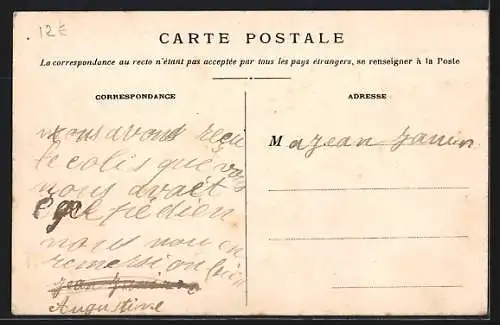 12€
CARTE POSTALE
La correspondance au recto n'étant pas acceptée par tous les pays étrangers, se renseigner à la Poste
CORRESPONDANCE
ADRESSE
nous avons reçu
le colis que vous
nous avaét
pédien
nous nou en
remersion bien
Jean Janin
Augustine
M a Jean Janin